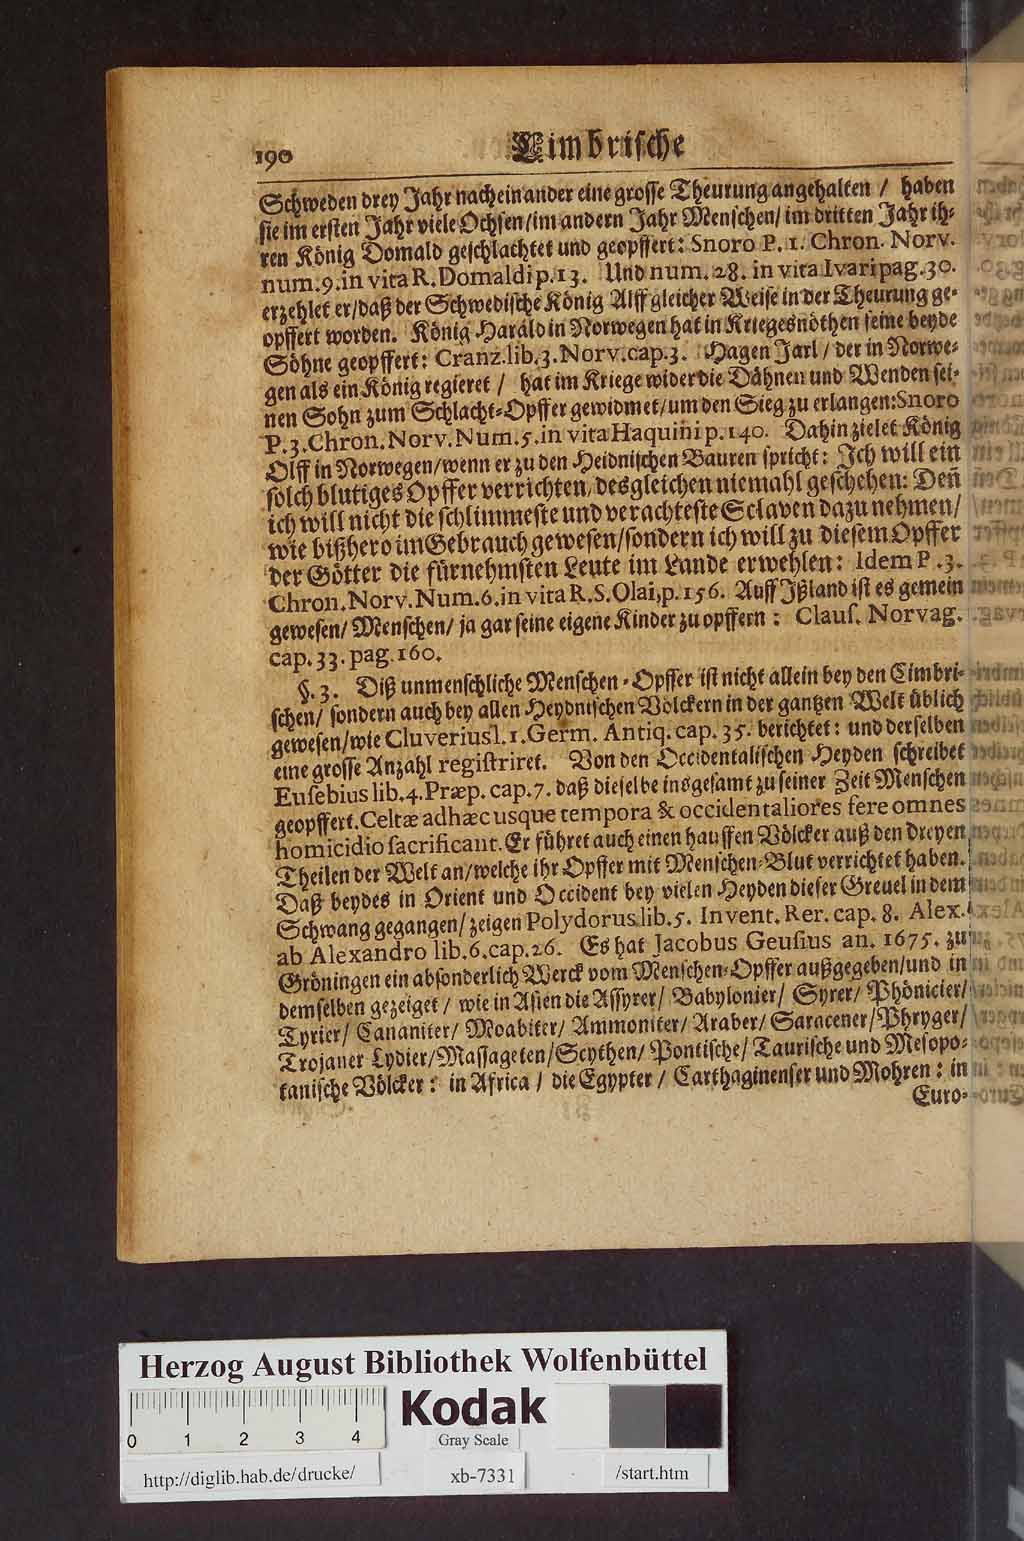 190 Cimbrische
Schweden drey Jahr nacheinander eine grosse Theurung angehalten / haben
sie im ersten Jahr viele Ochsen/im andern Jahr Menschen/ im dritten Jahr ih-
ren König Domald geschlachtet und geopffert: Snoro P. 1. Chron. Norv.
num. 9. in vita R. Domaldi p. 13. Und num. 28. in vita Ivari pag. 30.
erzehlet er/daß der Schwedische König Alff gleicher Weise in der Theurung ge-
opffert worden. König Harald in Norwegen hat in Kriegesnöthen seine beyde
Söhne geopffert: Cranz. lib. 3. Norv. cap. 3. Hagen Jarl / der in Norwe-
gen als ein König regieret / hat im Kriege wider die Dähnen und Wenden sei-
nen Sohn zum Schlacht-Opffer gewidmet/um den Sieg zu erlangen: Snoro
P. 3. Chron. Norv. Num. 5. in vita Haquini p. 140. Dahin zielet König
Olff in Norwegen/wenn er zu den Heidnischen Bauren spricht: Ich will ein
solch blutiges Opffer verrichten/desgleichen niemahl geschehen: Deñ
ich will nicht die schlimmeste und verachteste Sclaven dazu nehmen/
wie bißhero im Gebrauch gewesen/sondern ich will zu diesem Opffer
der Götter die fürnehmsten Leute im Lande erwehlen: Idem P. 3.
Chron. Norv. Num. 6. in vita R. S. Olai, p. 156. Auff Ißland ist es gemein
gewesen/ Menschen/ ja gar seine eigene Kinder zu opffern: Claus. Norvag.
cap. 33. pag. 160.
§. 3. Diß unmenschliche Menschen-Opffer ist nicht allein bey den Cimbri-
schen/ sondern auch bey allen Heydnischen Völckern in der gantzen Welt üblich
gewesen/wie Cluverius l. 1. Germ. Antiq. cap. 35. berichtet: und derselben
eine grosse Anzahl registriret. Von den Occidentalischen Heyden schreibet
Eusebius lib. 4. Præp. cap. 7. daß dieselbe insgesamt zu seiner Zeit Menschen
geopffert. Celtæ adhæc usque tempora & occidentaliores fere omnes
homicidio sacrificant. Er führet auch einen hauffen Völcker auß den dreyen
Theilen der Welt an/welche ihr Opffer mit Menschen-Blut verrichtet haben.
Daß beydes in Orient und Occident bey vielen Heyden dieser Greuel in dem
Schwang gegangen/zeigen Polydorus lib. 5. Invent. Rer. cap. 8. Alex.
ab Alexandro lib. 6. cap. 26. Es hat Jacobus Geusius an. 1675. zu
Gröningen ein absonderlich Werck vom Menschen-Opffer außgegeben/und in
demselben gezeiget / wie in Asien die Assyrer/ Babylonier/ Syrer/ Phönicier/
Tyrier/ Cananiter/ Moabiter/ Ammoniter/ Araber/ Saracener/Phryger/
Trojaner Lydier/Massageten/Scythen/ Pontische/ Taurische und Mesopo-
tanische Völcker: in Africa / die Egypter / Carthaginenser und Mohren: in
Euro-
Herzog August Bibliothek Wolfenbüttel
0 1 2 3 4
Kodak
Gray Scale
http://diglib.hab.de/drucke/ xb-7331 /start.htm